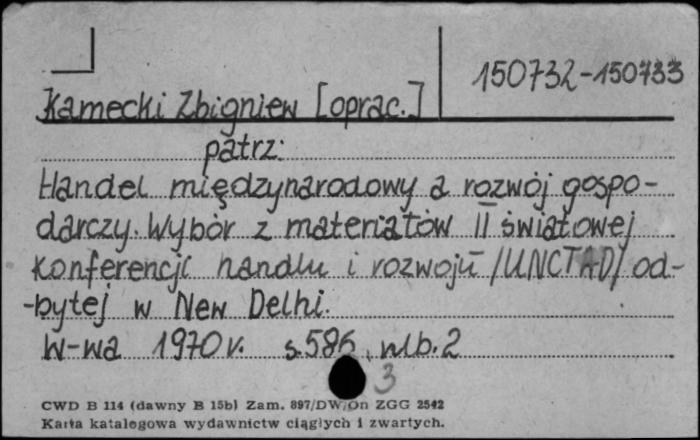 150732-150733
Kamecki Zbigniew [oprac.]
patrz:
Handel międzynarodowy a rozwój gospo-
darczy. Wybór z materiałów II światowej
Konferencji handlu i rozwoju /UNCTAD/ od-
-bytej w New Delhi.
W-wa 1970 r. s. 586, nlb. 2
3
CWD B 114 (dawny B 15b) Zam. 897/DW/On ZGG 2542
Karta katalogowa wydawnictw ciągłych i zwartych.